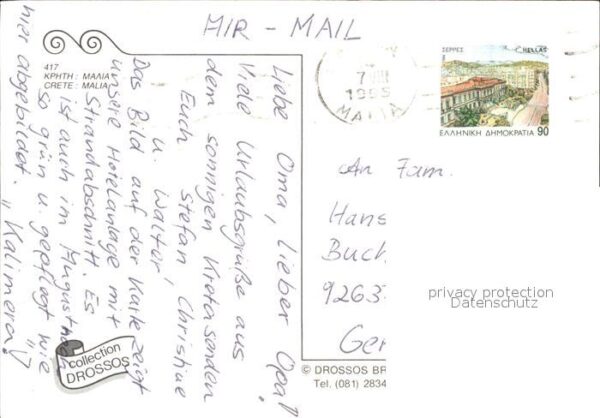 AIR - MAIL
417
ΚΡΗΤΗ : ΜΑΛΙΑ
CRETE : MALIA
7 VIII
1995
MALIA
ΣΕΡΡΕΣ
HELLAS
ΕΛΛΗΝΙΚΗ ΔΗΜΟΚΡΑΤΙΑ 90
Liebe Oma, lieber Opa!
Viele Urlaubsgrüße aus
dem sonnigen Kreta senden
Euch Stefan, Christine
u. Walter,
Das Bild auf der Karte zeigt
unsere Hotelanlage mit
Strandabschnitt. Es
ist auch im August noch
so grün u. gepflegt wie
hier abgebildet. "Kalimera"!
An Fam.
Hans
Buch
9263
Ger
privacy protection
Datenschutz
collection
DROSSOS
© DROSSOS BR
Tel. (081) 2834